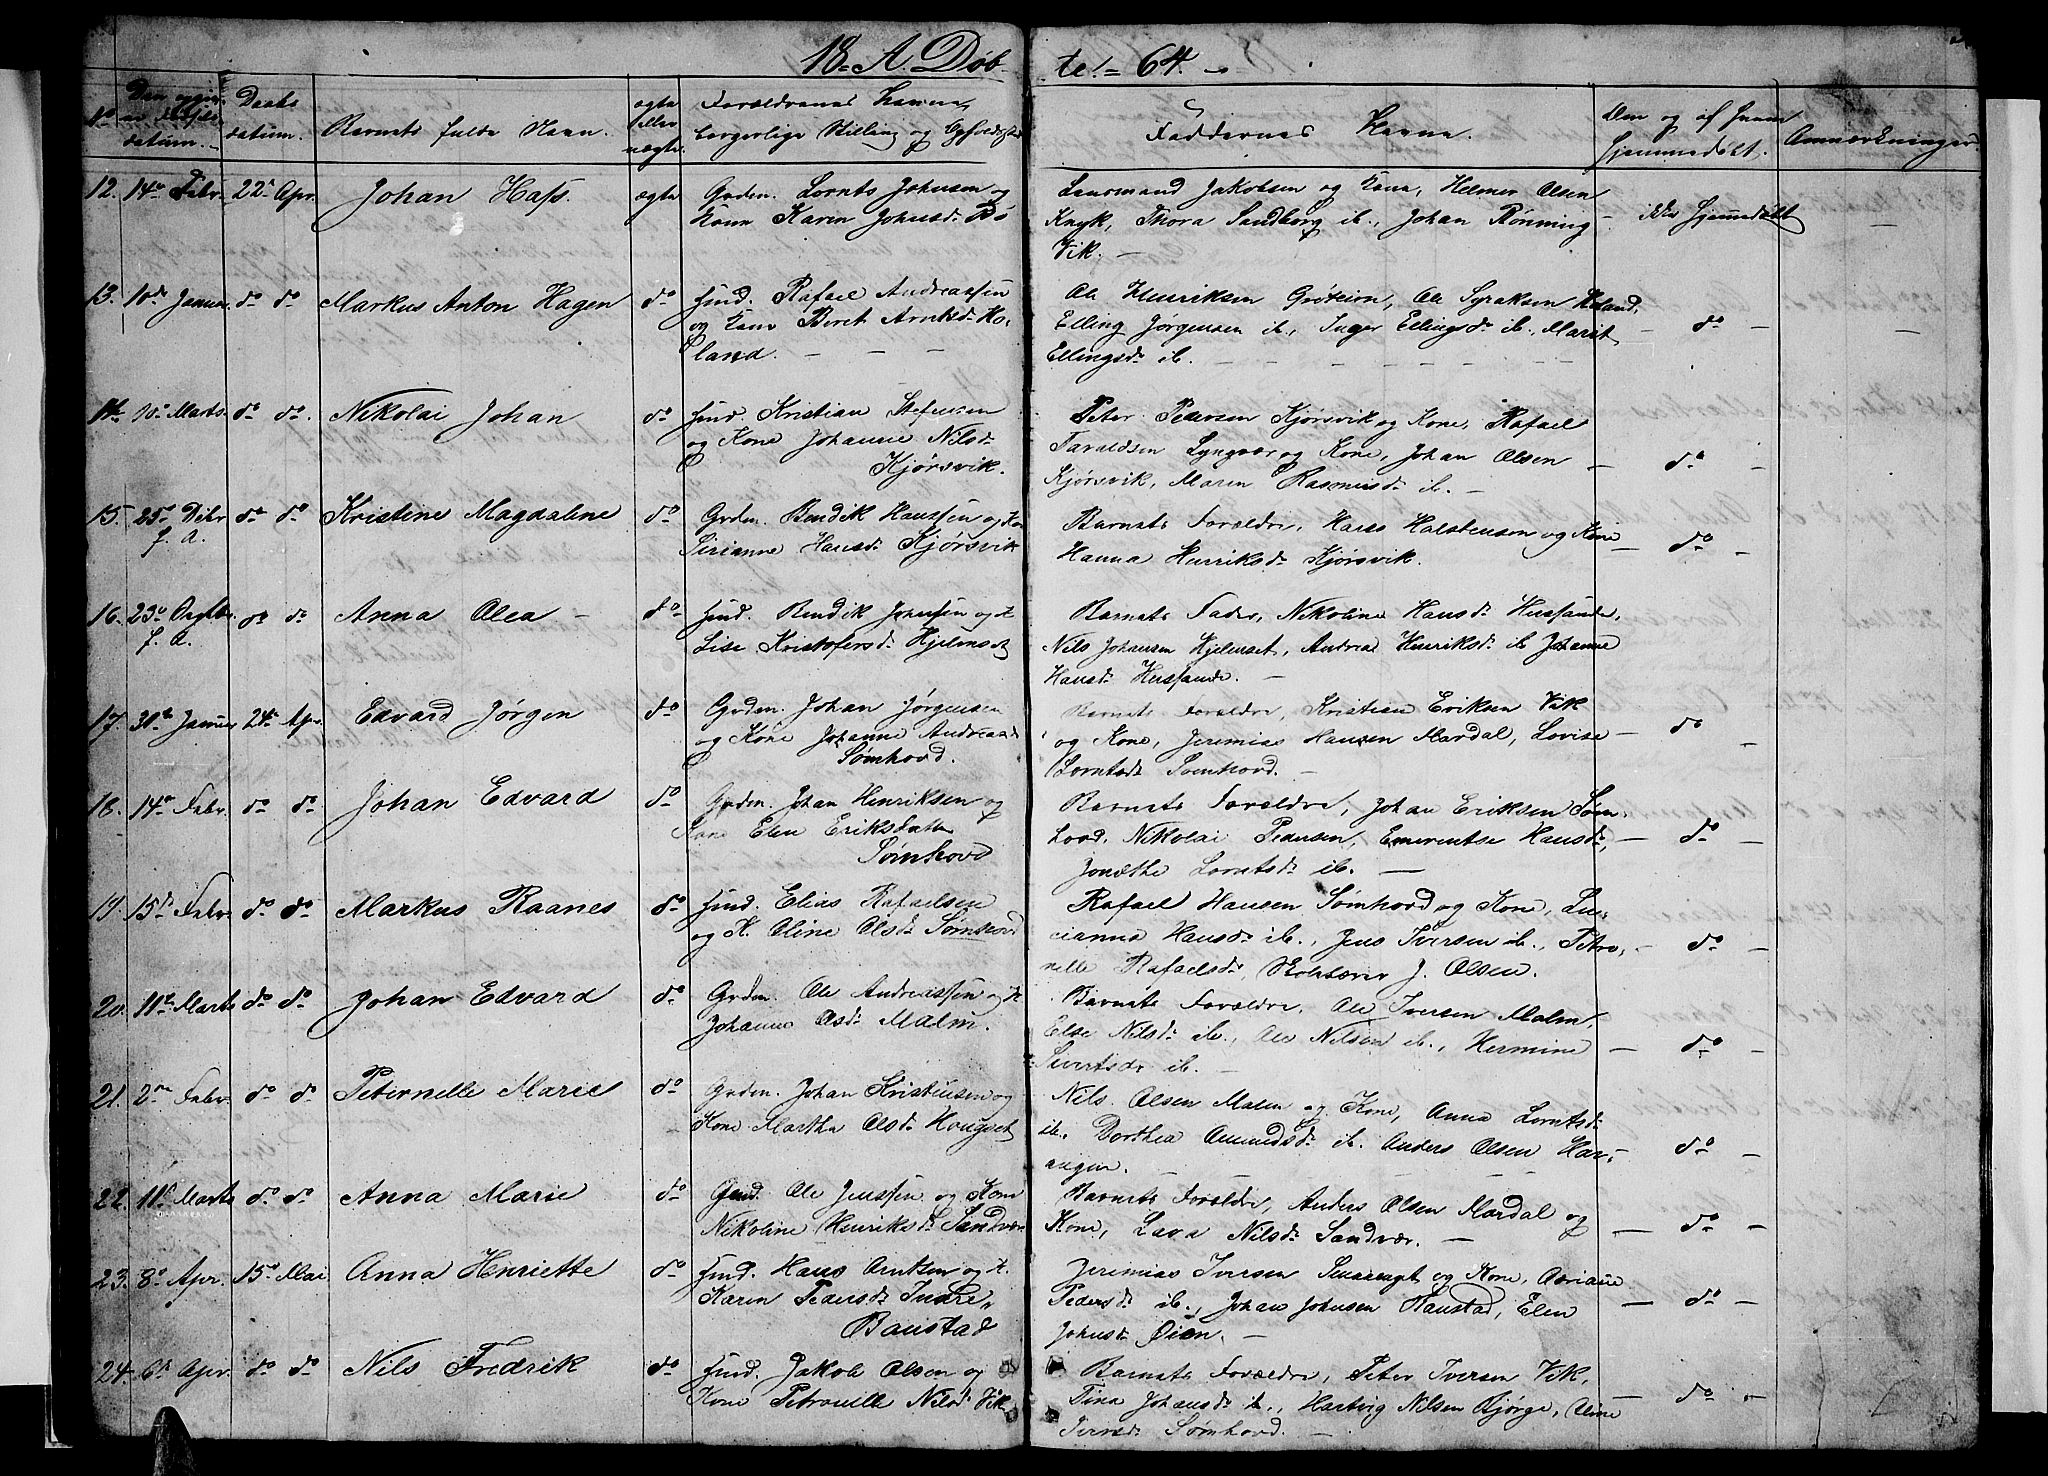 18= A. Døb te! = 64.
No Den egen- er Fødsels datum. Daabs datum. Barnets fulde Navn. ægte eller uægte. Forældrenes Navne, borgerlige Stilling og Opholdssted Faddernes Navne. Den og af hvem hjemmedøbt. Anmærkninger.
12. 14de Febr. 22de Apr. Johan Hass. ægte Grden. Lornts Johnsen og Kone Karen Johnsdr Bø
Lensmand Jakobsen og Kone, Helmer Olsen
Knyk, Thora Sandborg ib., Johan Rönning – ikke hjemmedøbt –
Vik. –
13. 10de Januar do do Markus Anton Hagen do Hmd. Rafael Andreassen
og Kone Beret Arntsdr Ho-
land. – – –
Ole Henriksen Grøteien, Ole Syraksen Holand,
Elling Jørgensen ib., Inger Ellingsdr ib., Marit – do – –
Ellingsdr ib.
14. 10de Marts do do. Nikolai Johan do Hmd Kristian Stefensen
og Kone Johanne Nilsdr
Kjørsvik.
Peter Pedersen Kjørsvik og Kone, Rafael
Taraldsen Lyngvær og Kone, Johan Olsen – do –
Kjørsvik, Maren Rasmusdr ib. –
15. 25de Debr f. A. do do Kristine Magdaline do Grden. Bendik Hanssen og Kone
Sirianne Hansdr Kjørsvik
Barnets Forældre, Hans Halstensen og Kone
Hanna Henriksdr Kjørsvik. – do –
16. 23de f. A. do do Anna Olea – do Hmd. Bendik Johnsen og K
Lise Kristofersdr Hjelmset
Barnets Fader, Nikoline Hansdr
Nils Johansen Hjelmset, Andrea Henriksdr ib Johanne
Hansdr –
17. 30te Januar 24de Apr. Edvard Jørgen do Grden. Johan Jørgensen
og Kone Johanne Andreasdr
Sømhovd.
Barnets Forældre, Kristian Eriksen Vik
og Kone, Jeremias Hansen Mardal, Lovise – do –
Lorntsdr Sømhovd. –
18. 14de Febr. do do Johan Edvard do Grden. Johan Henriksen og
Kone Elen Eriksdatter
Sømhovd
Barnets Forældre, Johan Eriksen Søm-
hovd, Nikolai Pedersen, Emerentse Hansdr, – do –
Jonethe Lorntsdr ib. –
19. 15de Febr. do do Markus Raanes do Hmd. Elias Rafaelsen
og K. Oline Olsdr Sømhovd
Rafael Hansen Sømhovd og Kone, Lu-
cianna Hansdr ib., Jens Iversen ib., Petro- – do –
nelle Rafaelsdr, J. Olsen.
20. 11te Marts do do Johan Edvard do Grden. Ole Andreassen og K
Johanna Olsdr Malm.
Barnets Forældre, Ole Iversen Malm,
Else Nilsdr ib., Ole Nilsen ib., Hermine – do –
Sivertsdr ib. –
21. 2den Febr. do do Peternelle Marie do Grden. Johan Kristensen og
Kone Martha Olsdr Hougset
Nils Olsen Malm og Kone, Anna Lorntsdr
ib., Dorthea Amundsdr ib. Anders Olsen Har- – do –
angen. –
22. 11te Marts do do Anna Marie do Gmd. Ole Jenssen og Kone
Nikoline Henriksdr Sandvær
Barnets Forældre, Anders Olsen Mardal og
Kone, Lava Nilsdr Sandvær. – – do –
23. 8de Apr. 15de Mai Anna Henriette do Hmd. Hans Arntsen og K.
Karen Pedersdr Indre-
Baustad
Jeremias Iversen og Kone, Adriane
Pedersdr ib., Johan Johnsen Raustad, Elen – do –
Johnsdr Øien. –
24. 6te Apr. do do Nils Fredrik do Hmd. Jakob Olsen og
Kone Petronille Nilsdr Vik
Barnets Forældre, Peter Iversen Vik,
Tina Johansdr ib., Hartvig Nilsen Bjørge, Oline – do –
Iversdr Sømhovd. –